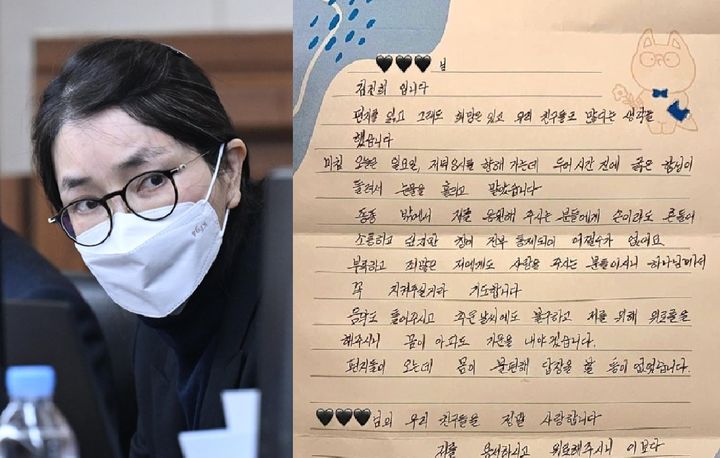 🖤🖤🖤 님
김건희 입니다
편지를 읽고 그래도 희망은 있고 우리 친구들도 많다는 생각을
했습니다
마침 오늘은 일요일, 저녁 8시를 향해 가는데 두어시간 전에 굵은 함성이
들려서 눈물을 흘리고 말았습니다
종종 밖에서 저를 응원해 주시는 분들에게 손이라도 흔들어
소통하고 싶지만 창이 전부 통제되어 어쩔수가 없어요
부족하고 죄많은 저에게도 사랑을 주시는 분들이시니 하나님께서
꼭 지켜주실거라 기도합니다
음악도 틀어주시고 추운날씨에도 불구하고 저를 위해 위로를
해주시니 몸이 아파도 기운을 내야겠습니다.
편지들이 오는데 몸이 불편해 답장을 쓸 힘이 없었습니다.
🖤🖤🖤님의 우리 친구들을 정말 사랑합니다
저를 용서하시고 위로해주시니